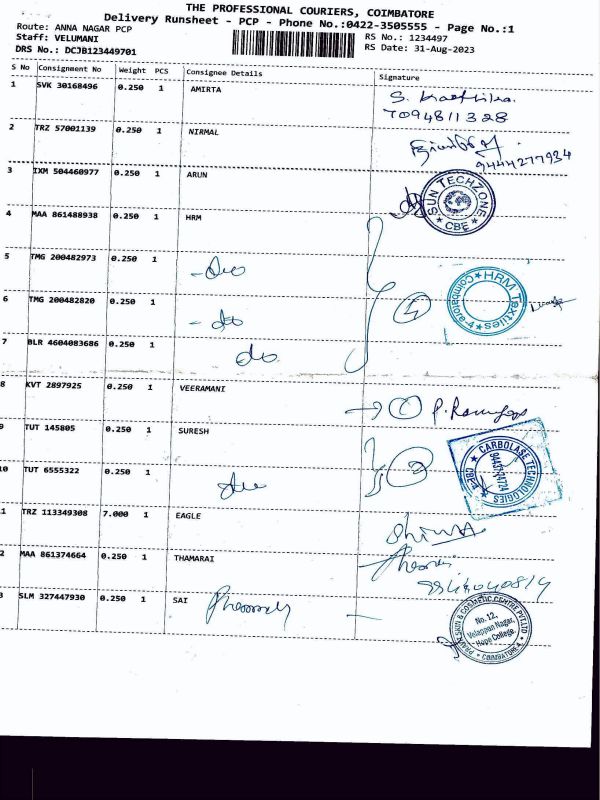 THE PROFESSIONAL COURIERS, COIMBATORE
Delivery Runsheet - PCP - Phone No.:0422-3505555 - Page No.:1
Route: ANNA NAGAR PCP
Staff: VELUMANI
DRS No.: DCJB123449701
RS No.: 1234497
RS Date: 31-Aug-2023
S No Consignment No Weight PCS Consignee Details Signature
1 SVK 30168496 0.250 1 AMIRTA
7094811328
2 TRZ 57001139 0.250 1 NIRMAL
9444277934
3 IXM 504460977 0.250 1 ARUN
SUN TECHZONE
* CBE *
4 MAA 861488938 0.250 1 HRM
5 TMG 200482973 0.250 1 -do
HRM Textiles
Coimbatore-4
6 TMG 200482820 0.250 1 -do
4
7 BLR 4604083686 0.250 1 do
8 KVT 2897925 0.250 1 VEERAMANI
9 TUT 145805 0.250 1 SURESH
2
CARBOLASE TECHNOLOGIES
CBE-4
10 TUT 6555322 0.250 1 do
1 TRZ 113349308 7.000 1 EAGLE
2 MAA 861374664 0.250 1 THAMARAI
3 SLM 327447930 0.250 1 SAI
SKIN & COSMETIC CENTRE PVT LTD
No. 12,
Velappan Nagar,
Hope College.
* COIMBATORE 4. *